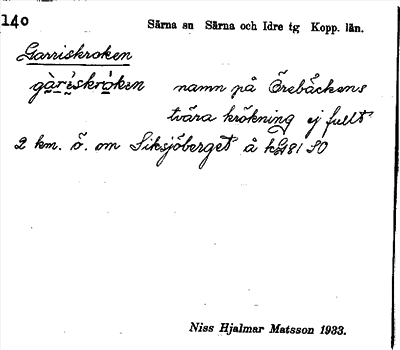 140
Särna sn Särna och Idre tg Kopp. län.
Garriskroken
gàriskròken namn på Örebäckens
tvära krökning ej fullt
2 km. ö. om Siksjöberget å kbl 81 SO
Niss Hjalmar Matsson 1933.